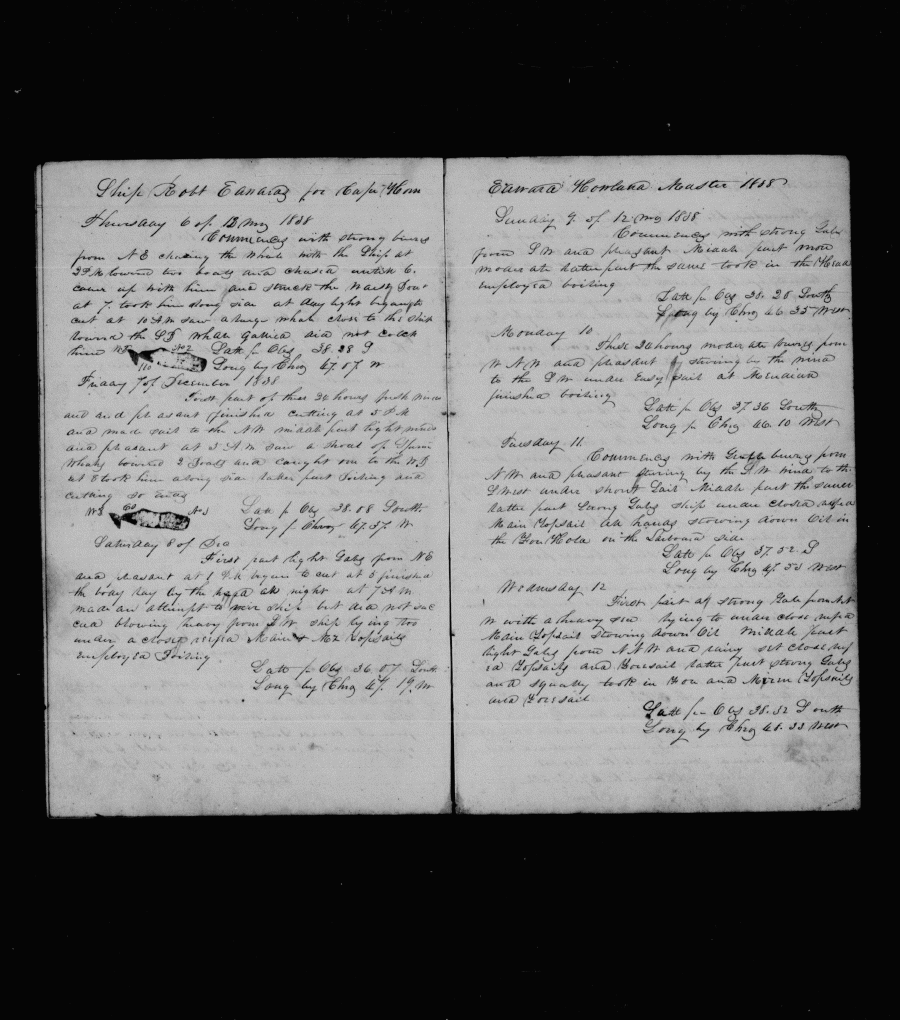 Ship Robt Edwards for Cape Horn
Thursday 6 of 12 Mo 1838
Commences with strong breezes
from NE chasing the whale with the Ship at
2 PM lowerd two boats and chased untill 6.
came up with him and struck the Waist Boat
at 7. took him along side at day light began to
cut at 10 AM saw a large whale close to the ship
lowerd the SB whale Gallied did not catch
him WB No2 Latt pr Obs 38.28 S
110 Long by Chro 47.07 W
Friday 7 of December 1838
First part of these 24 hours fresh winds
and pleasant finished cutting at 5 PM
and made sail to the NW middle part light winds
and pleasant at 5 AM saw a Shoal of Sperm
Whales lowerd 2 Boats and caught one to the WB
at 8 took him along side latter part Boiling and
cutting so ends
WB 60 No3 Latt pr Obs 38.08 South
Long pr Chro 47.37 W
Saturday 8 of Dec
First part light Gales from NE
and pleasant at 1 PM began to cut at 5 finished
the body lay by the head all night at 7 AM
made an attempt to wair ship but did not suc
ceed blowing heavy from SW ship lying too
under a close reefed Main & Mz Topsails
employed Boiling
Latt pr Obs 36.07 South
Long by Chro 47.19 W
Edward Howland Master 1838
Sunday 9 of 12 Mo 1838
Commences with strong Gales
from SW and pleasant Middle part more
moderate latter part the same took in the Head
employed boiling
Latt pr Obs 38.28 South
Long by Chro 46 35 West
Monday 10
These 24 hours moderate breezes from
W N W and pleasant steering by the wind
to the SW under Easy sail at Meridian
finished boiling
Latt pr Obs 37.36 South
Long pr Chro 46.10 West
Tuesday 11
Commences with breezes from
NW and pleasant steering by the SW wind to the
SWest under short Sail Middle part the same
latter part Strong Gales ship under close reefed
Main Topsail all hands stowing down Oil in
the Fore Hold on the Larboard side
Latt pr Obs 37.52 S
Long by Chro 47.53 West
Wednesday 12
First part strong Gales from N
W with a heavy sea lying to under close reefed
Main Topsail Stowing down Oil Middle part
light Gales from N N W and rainy set close reef
ed Topsails and Foresail latter part strong Gales
and squally took in Fore and Mizen Topsails
and Foresail
Latt pr Obs 38.52 South
Long by Chro 48.33 West